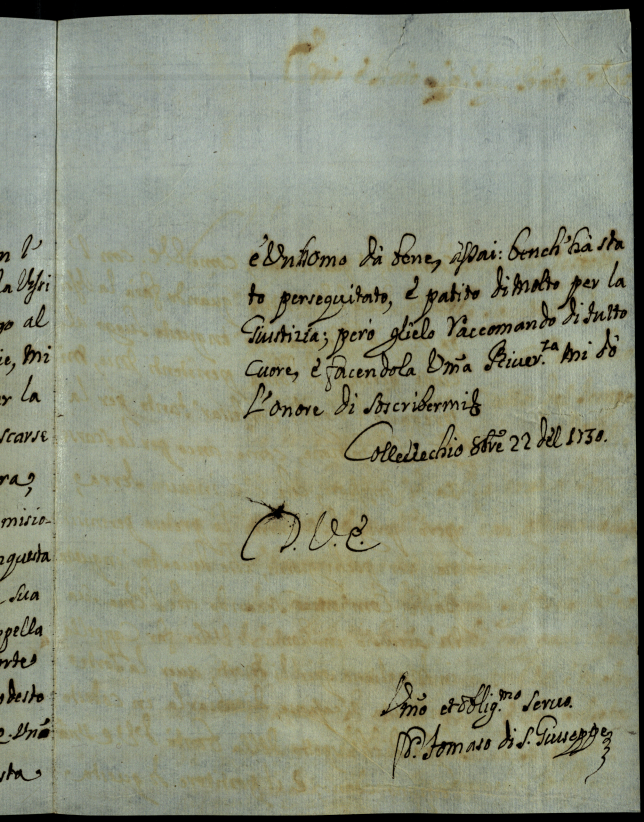 n l'
la Vissi
go al
ie, mi
er la
scarse
ra,
misio-
questa
sua
ppella
orte
odesto
Umã
sta
è Un homo dà bene, assai: bench'hà sta
to perseguitato, è patito di Molto per la
Giustizia; però glielo raccomando di tutto
cuore, è facendola Umã River.za Mi dò
L'onore di Soscribermi
Collecchio 8bre 22 del 1730.
D. V. E.
Umõ et oblig.mo servo.
Tomaso di S. Giuseppe